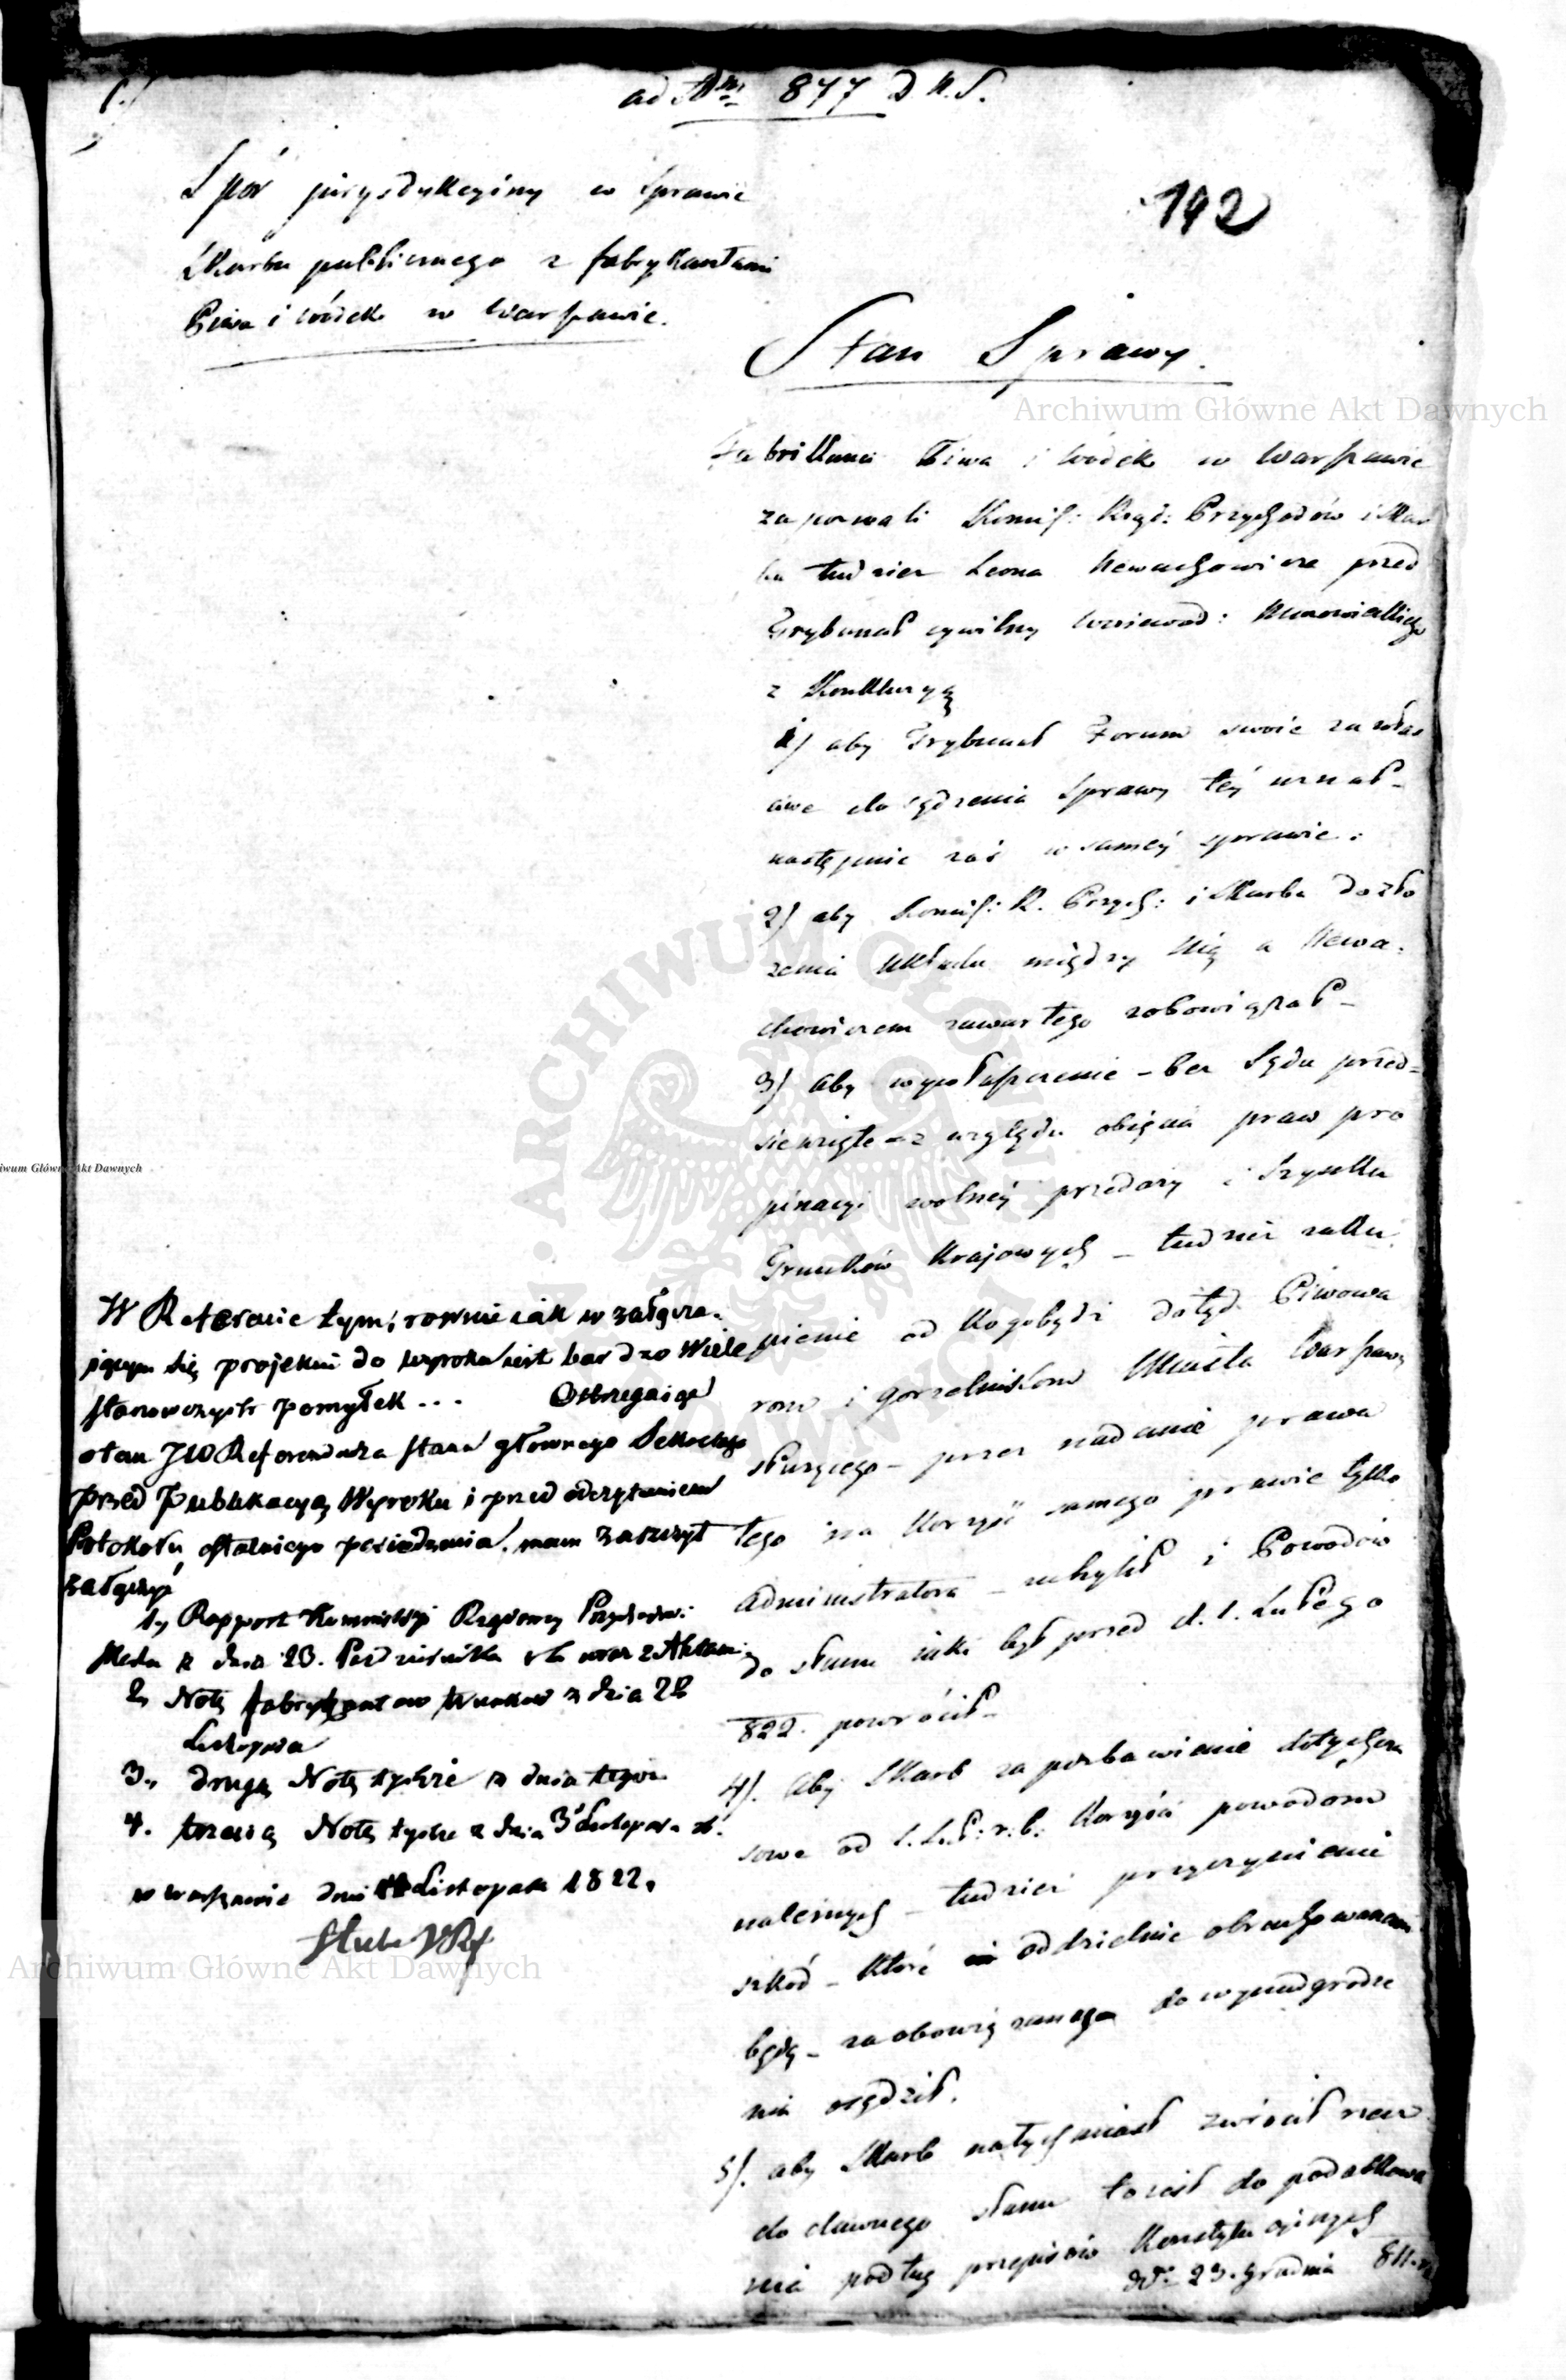 ad Nrm 877 D.K.S.
192
Spór jurysdykcyiny w Sprawie
Skarbu publicznego z fabrykantami
Piwa i wódek w Warszawie.
Stan Sprawy.
Archiwum Główne Akt Dawnych
Fabrikanci Piwa i wódek w Warszawie
zapozwali Kommis: Rząd: Przychodów i Skar
bu tudzież Leona Newachowicza przed
Trybunał cywilny Woiewód: Mazowieckiego
z Konkluzyą
1) aby Trybunał Forum swoie za właś
ciwe do sądzenia Sprawy téy uznał –
następnie zaś w saméy sprawie:
2) aby Kommis: R. Przych: i Skarbu do zło
żenia układu między Nią a Newa-
chowiczem zawartego zobowiązał –
3) aby wywłaszczenie – bez Sądu przed=
siewzięte – z względu obięcia praw pro
pinacyi wolnéy przedaży i Szynku
Trunków Kraiowych – tudzież zaku
pienie od kogobądź dotąd Piwowa
rom i gorzelnikom Miasta Warszawy
służącego – przez nadanie prawa
tego na korzyść samego prawie tylko
administratora – uchylił i Powodów
do stanu iaki był przed d. 1. Lutego
822. powrócił –
4). Aby Skarb za pozbawienie dotychcza
sowe od 1. Lut: r.b: korzyści powodom
należnych – tudzież przyczynienie
szkód – które oddzielnie obrachowane
będą – za obowiązanego do wynadgrodze
nia osądził.
5). aby Skarb natychmiast zwrócił rzecz
do dawnego stanu to iest do podatkowa
nia podług przepisów Konstytucyinych
dd: 23. Grudnia 811. r.
iwum Główne Akt Dawnych
W Referacie tym, rownie iak w załącza-
iącym się projekcie do wyroku iest bardzo wiele
stanowczych pomyłek ... Ostrzegaiąc
o tem JW Referendarza stanu głownego Sekretarza
przed Publikacyą Wyroku i przed odczytaniem
Protokołu ostatniego posiedzenia, mam zaszczyt
załączyć
1, Rapport Kommissyi Rządowey Przychodow i
Skarbu z dnia 23. Października r.b. wraz z Aktami
2, Notę fabrykantow trunkow z dnia 28
Listopada
3., drugą Notę tychże z dnia tegoż
4. trzecią Notę tychże z dnia 3 Listopada r.b.
w Warszawie dnia Listopada 1822.
Archiwum Główne Akt Dawnych
ARCHIWUM GŁÓWNE AKT DAWNYCH